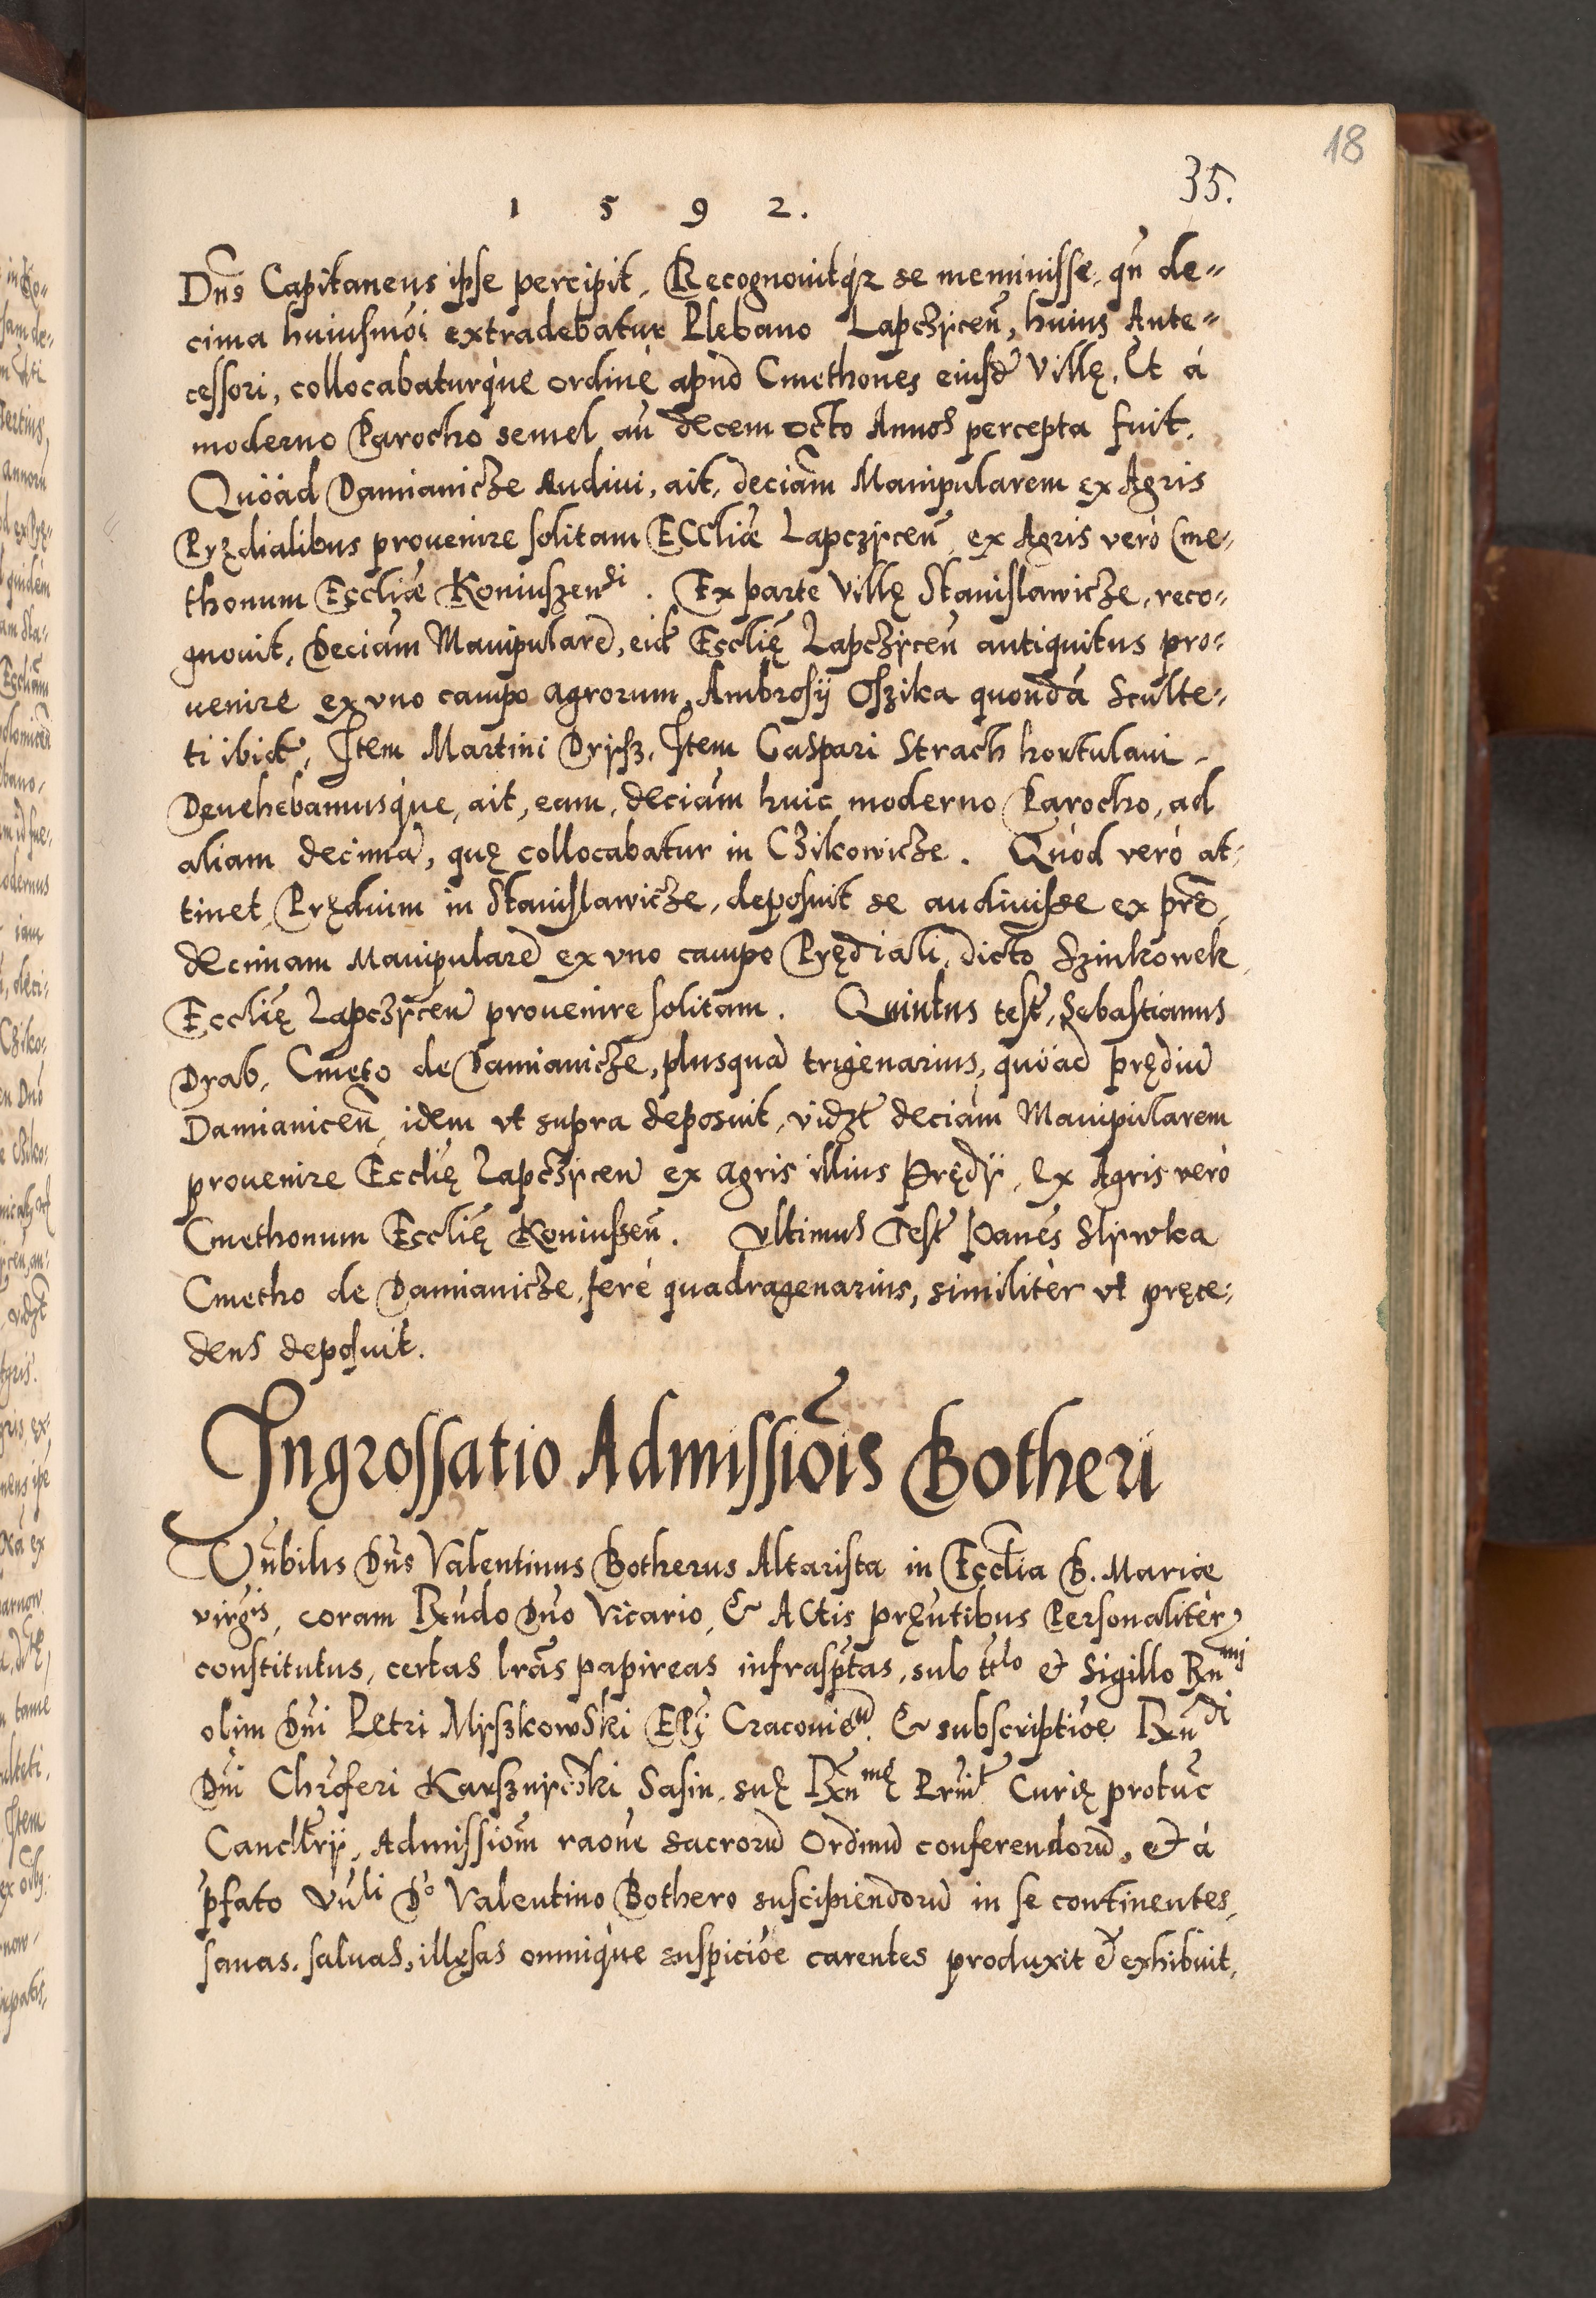 18
35.
1 5 9 2.
Dn̄s Capitaneus ipse percipit, Recognouitq́ʒ se meminisse, qn̄ de=
cima huiusmōi extradebatur Plebano Lapcʒÿcen̄, huius Ante=
cessori, collocabaturq́ue ordinè apud Cmethones eiusd̄ Villę, Et à
moderno Parocho semel an̄ decem octo Annos percepta fuit.
Quöad Damianicʒe Audiui, ait, deciām Manipularem ex Agris
Pręedialibus prouenire solitam Eccliæ Lapczÿcen̄, ex Agris verò Cme-
thonum Eccliæ Koniuszen̄di. Ex parte Villę Stanislawicʒe, reco-
gnouit, Deciām Manipularē, eid̄ Ecclię Lapcʒÿcen̄ antiquitus pro-
uenire ex vno campo agrorum Ambrosÿ Oszika quondā Sculte-
ti ibid̄, Item Martini Drÿsz, Item Caspari Strach hortulani.
Deuehebamusq́ue, ait, eam, deciām huic moderno Parocho, ad
aliam decimā, quę collocabatur in Cʒikowicʒe. Quòd verò at-
tinet Prędium in Stanislawicʒe, deposuit se audiuisse ex pr̄e,
decimam Manipularē ex vno campo Prędiali, dicto Szinkowek
Ecclię Lapcʒÿcen̄ prouenire solitam. Quintus test̄, Sebastianus
Drab, Cmeto de Damianicʒe, plusquā trigenarius, quöad prędiū
Damianicen̄, idem vt supra deposuit, vidʒt deciām Manipularem
prouenire Ecclię Lapcʒÿcen̄ ex agris illius Prędÿ, Ex Agris verò
Cmethonum Ecclię Koniuszen̄. Vltimus Test̄ Ioanēs Slÿwka
Cmetho de Damianicʒe, ferè quadragenarius, similitèr vt pręce-
dens deposuit.
Ingrossatio Admissiōis Botheri
Vn̄bilis Dn̄s Valentinus Botherus Altarista in Ecclīa B. Mariæ
virgis, coram Rn̄do Dn̄o Vicario, & Actis pręn̄tibus Personalitèr
constitutus, certas lrās papireas infrasp̄tas, sub tt̄lo et Sigillo Rn̄mj
olim Dn̄i Petri Mÿszkowski Ep̄j Cracouien̄. & subscriptiōe Rn̄di
Dn̄i Chr̄oferi Karsznÿcʒki Sasin, suę Rn̄mę Prn̄it̄ Curię protūc
Cancllr̄ÿ, Admissiōm raōne sacrorū Ordinū conferendorū, et à
p̄fato Vn̄li Do Valentino Bothero suscipiendorū in se continentes,
sanas, saluas, illęsas omniq́ue suspiciōe carentes produxit et exhibuit,